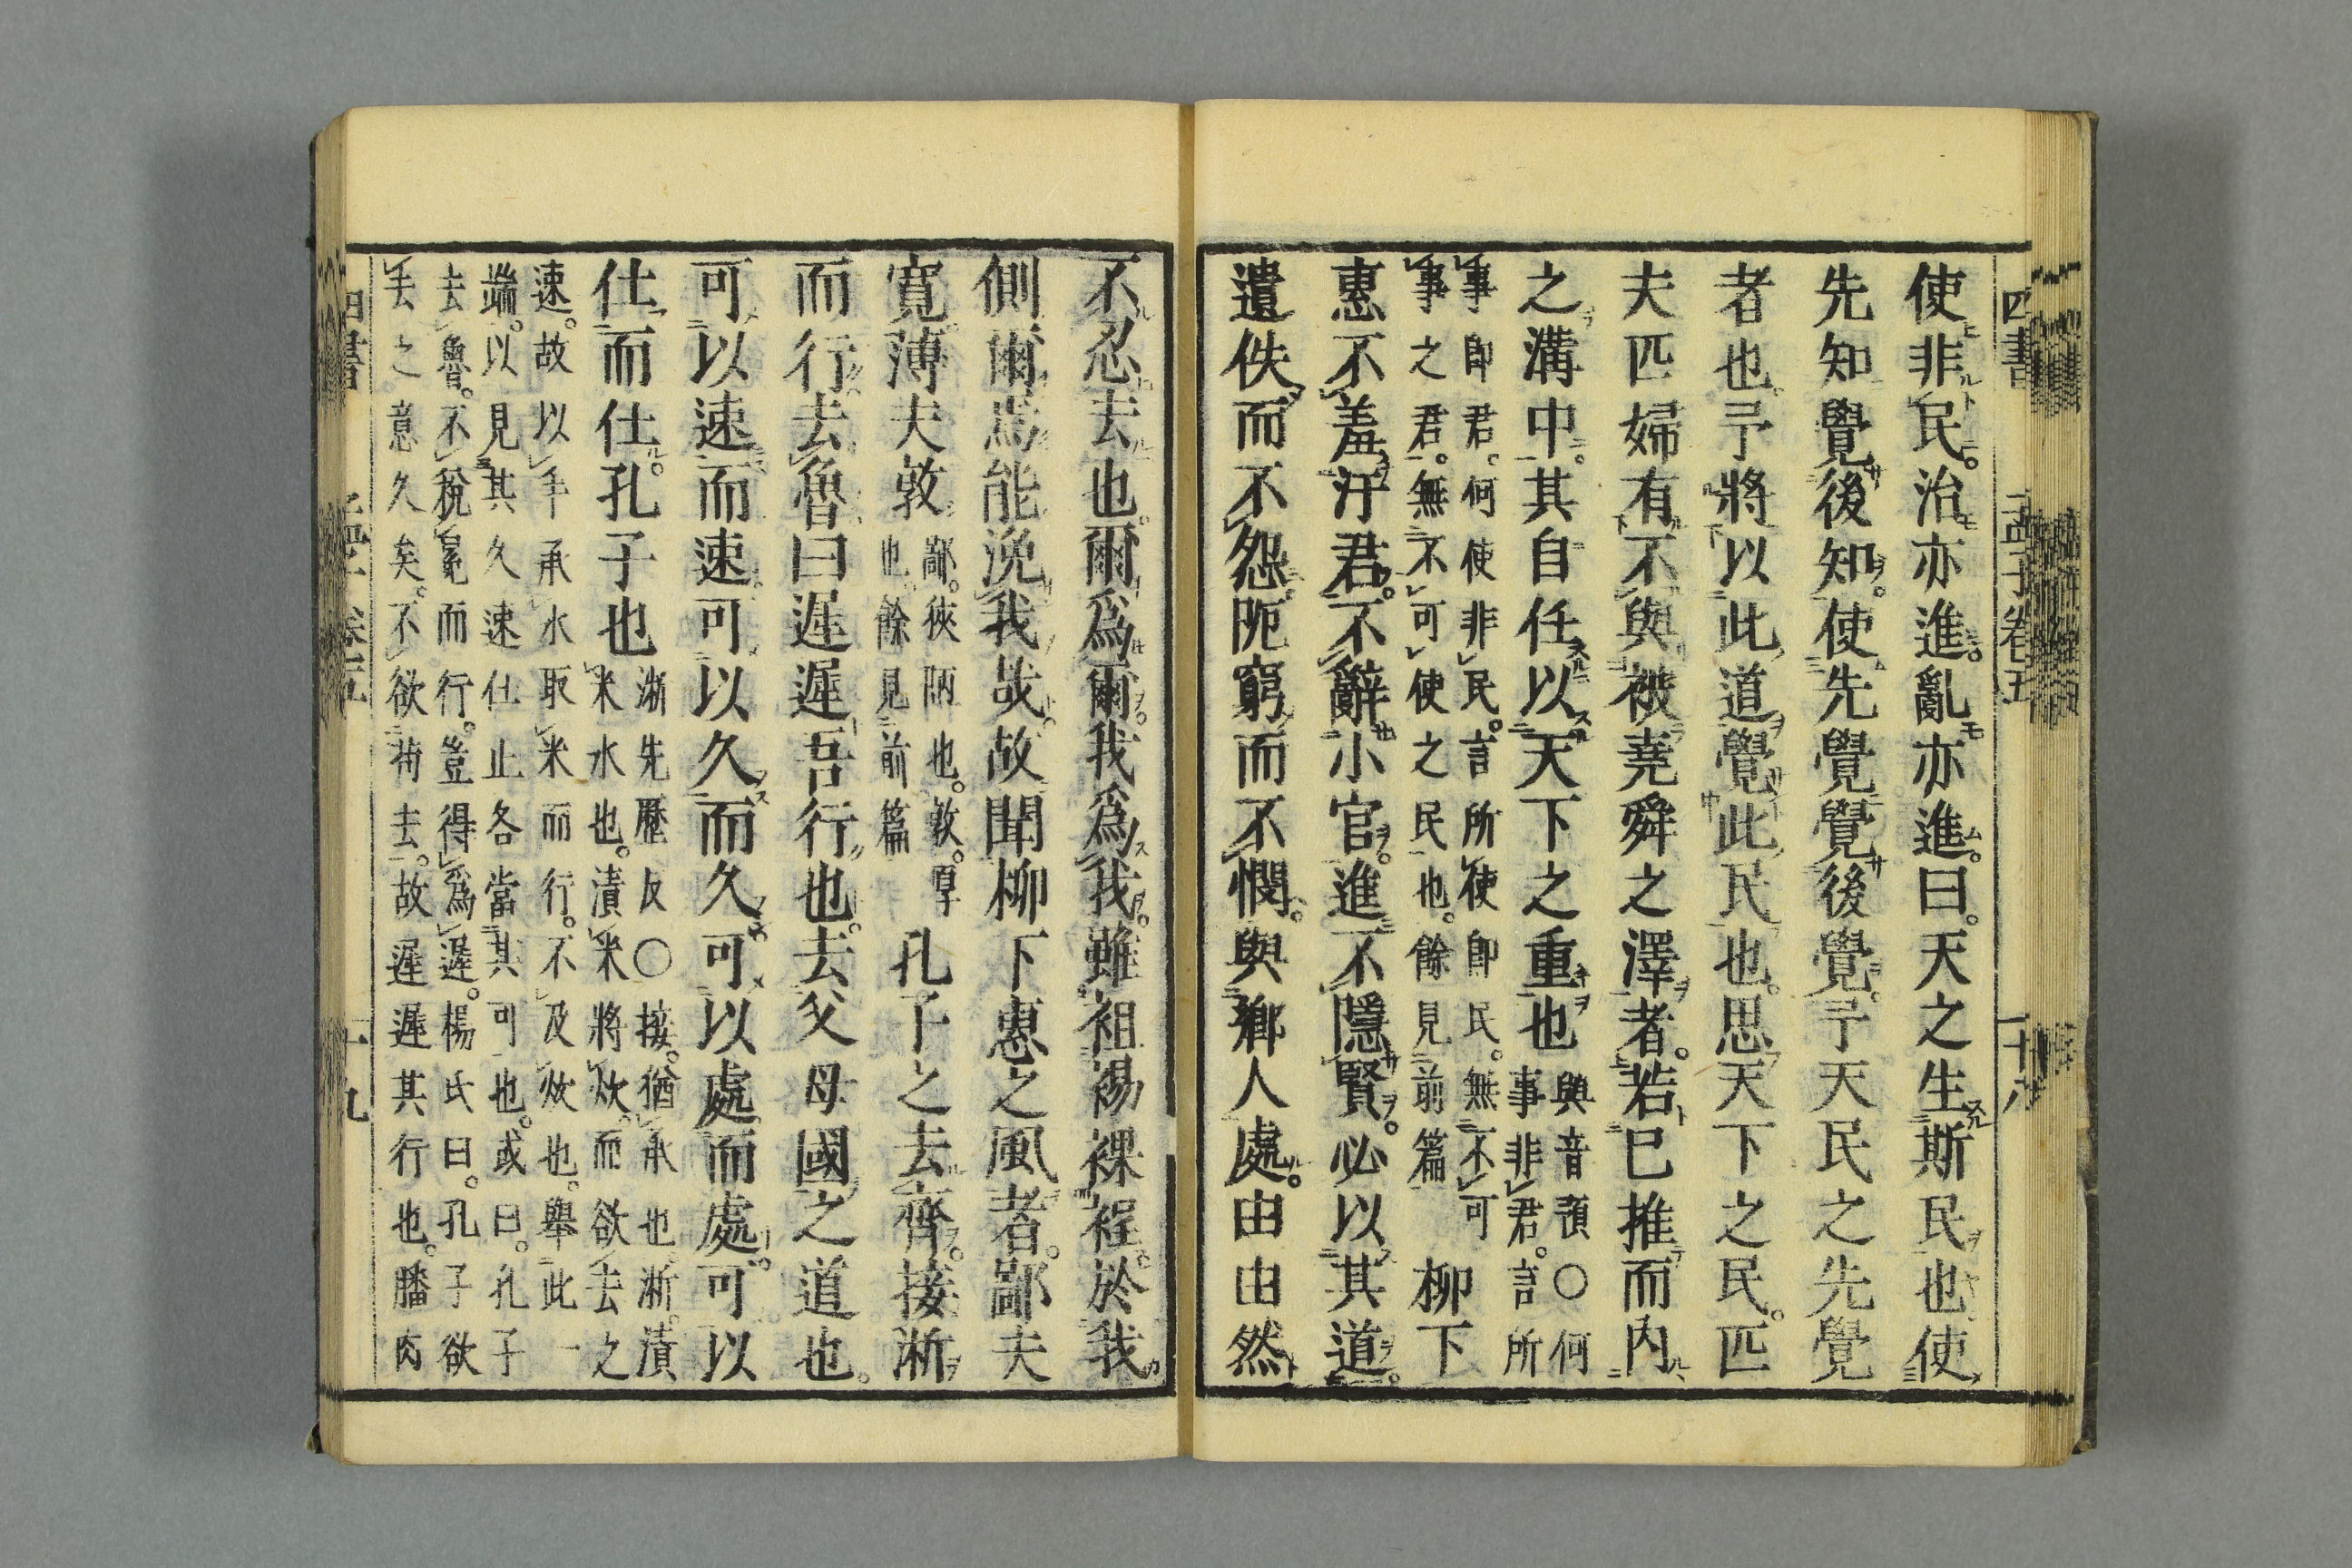 四書 孟子卷五 十八
使非民。治亦進。亂亦進。曰。天之生斯民也使
先知覺後知。使先覺覺後覺。予天民之先覺
者也。予將以此道覺此民也。思天下之民。匹
夫匹婦有不與被堯舜之澤者。若已推而內
之溝中。其自任以天下之重也
與音預〇何
事非君。言所
事即君。何使非民。言所使即民。無不可
事之君。無不可使之民也。餘見前篇
柳下
惠不羞汙君。不辭小官。進不隱賢。必以其道。
遺佚而不怨。阨窮而不憫。與鄉人處。由由然
不忍去也。爾爲爾。我爲我。雖袒裼裸裎於我
側。爾焉能浼我哉。故聞柳下惠之風者。鄙夫
寬薄夫敦
鄙。狹陋也。敦。厚
也。餘見前篇
孔子之去齊。接淅
而行。去魯曰遲遲吾行也。去父母國之道也。
可以速而速。可以久而久。可以處而處。可以
仕而仕。孔子也
淅先歷反〇接。猶承也。淅。漬
米水也。漬米將炊。而欲去之
速。故以手承水取米而行。不及炊也。舉此一
端。以見其久速仕止各當其可也。或曰。孔子
去魯。不稅冕而行。豈得爲遲。楊氏曰。孔子欲
去之意久矣。不欲苟去。故遲遲其行也。膰肉
四書 孟子卷五 十九